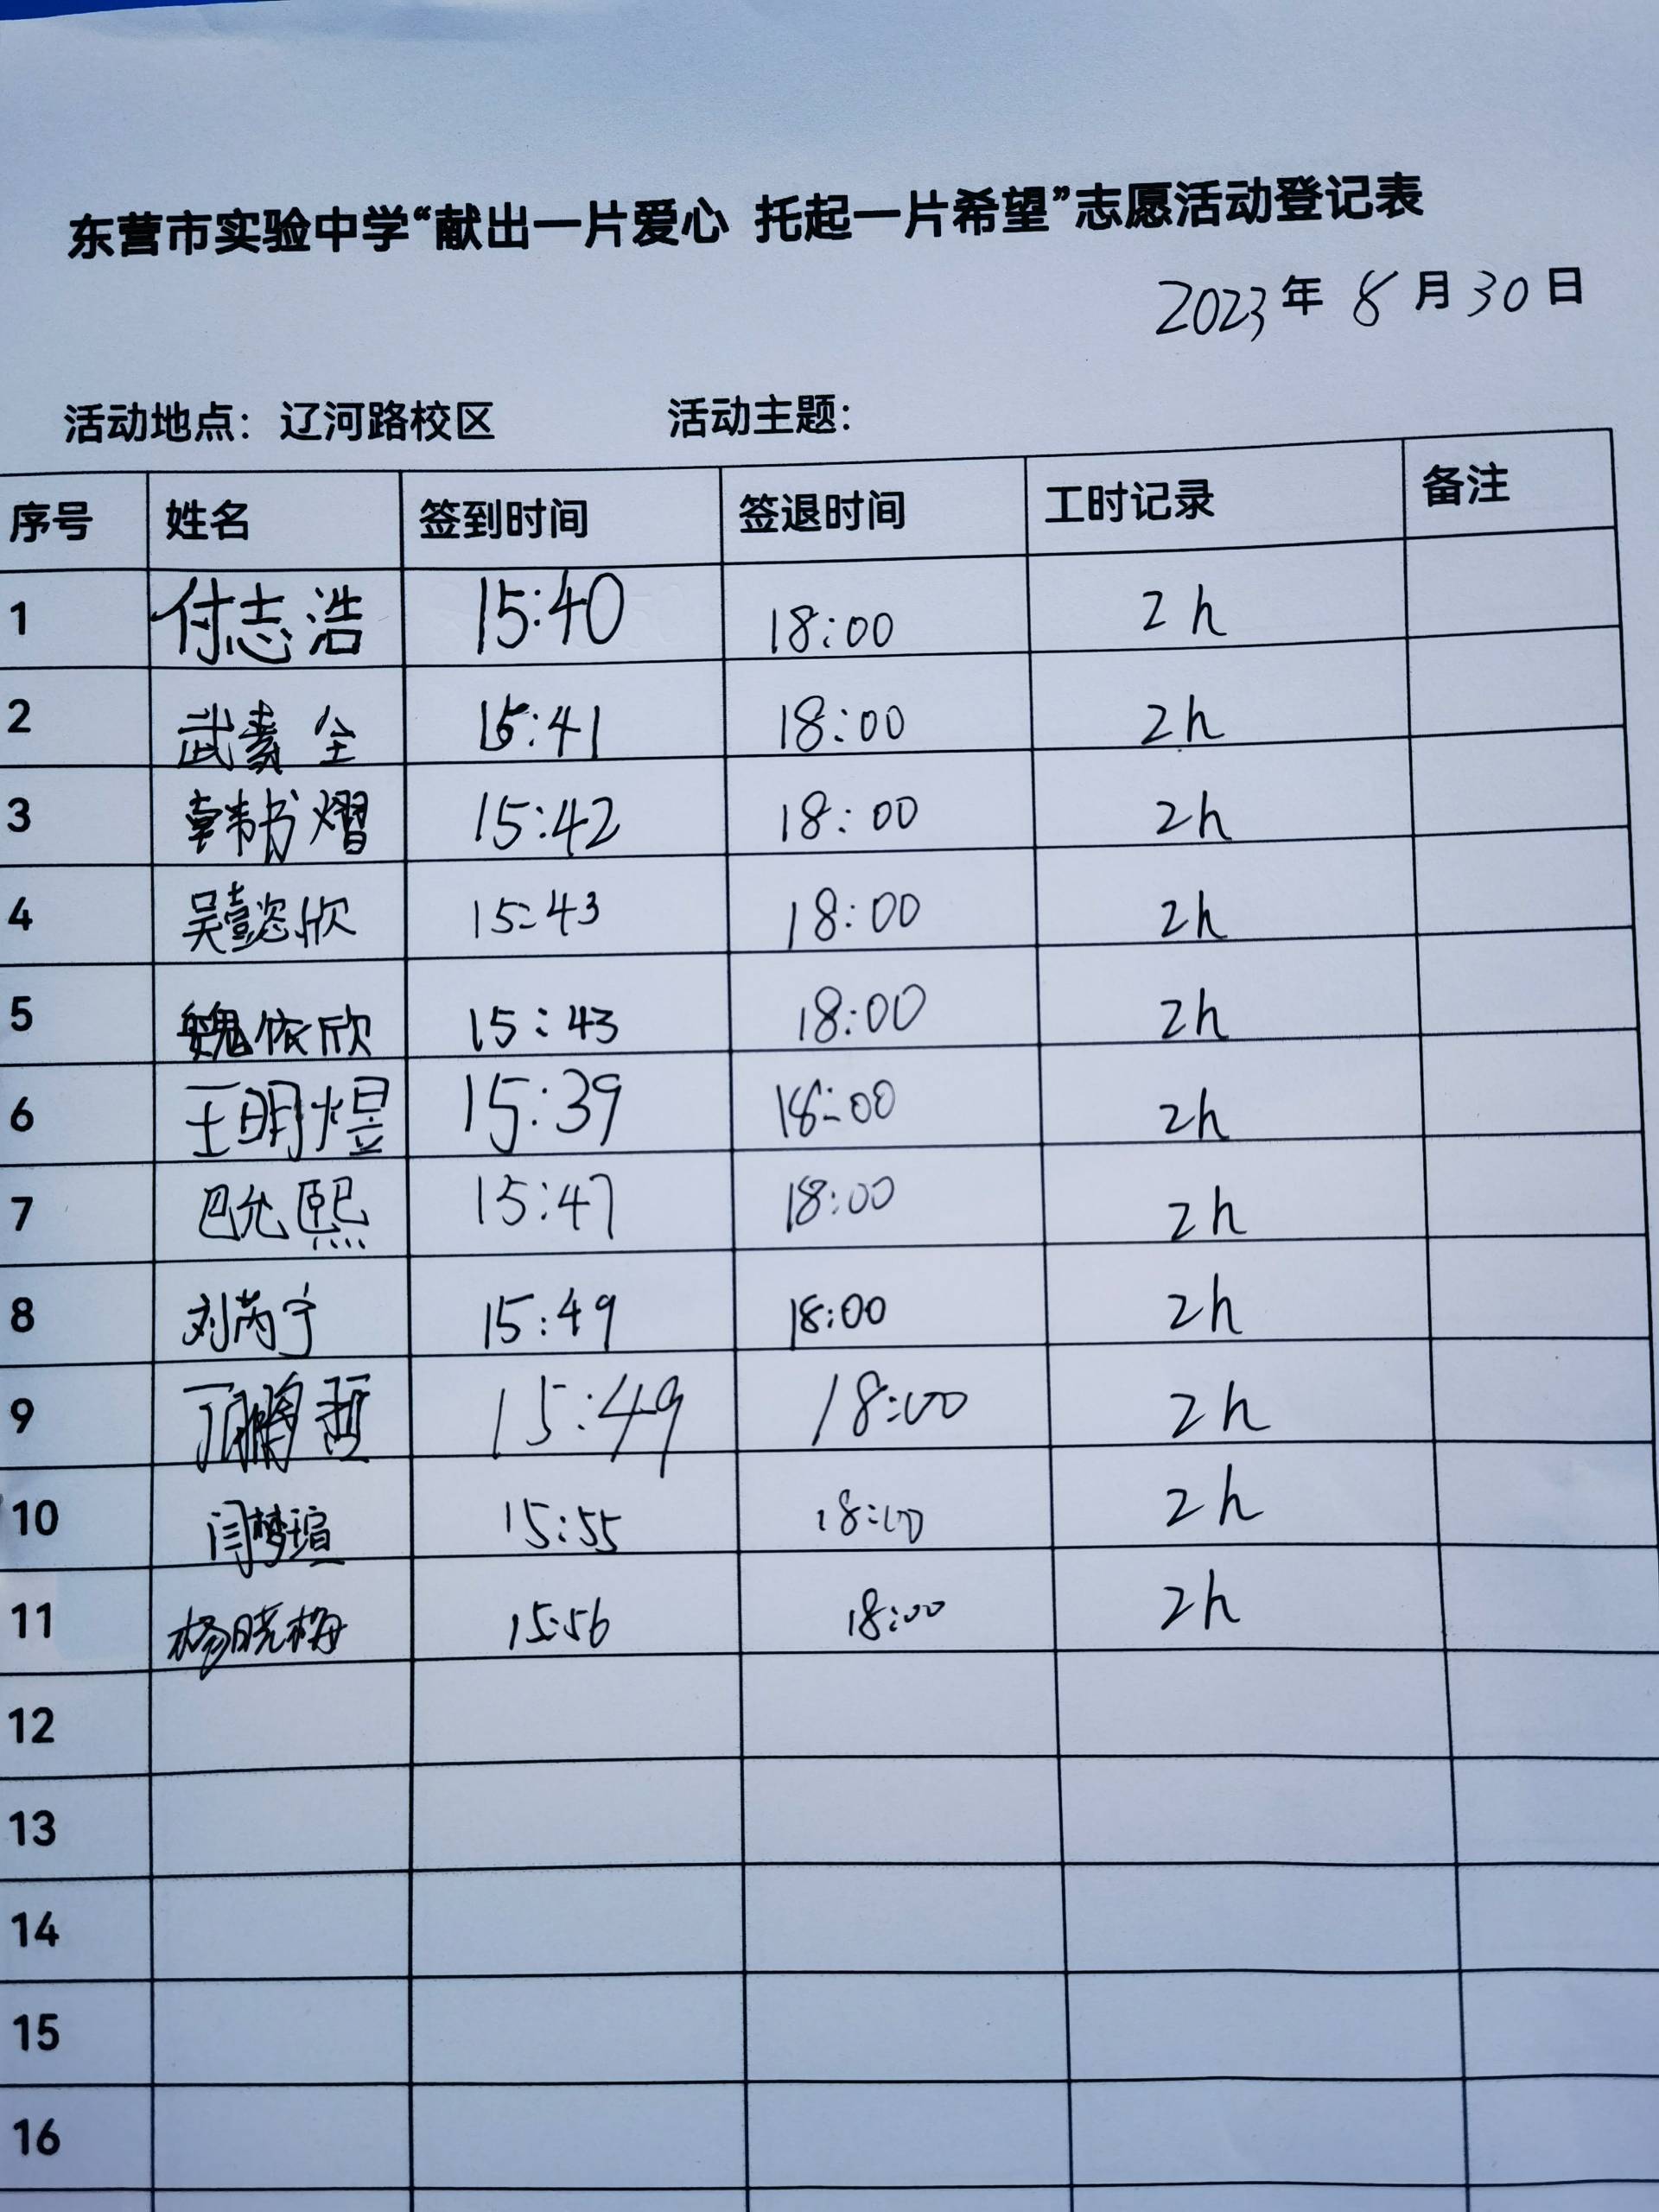 东营市实验中学“献出一片爱心 托起一片希望”志愿活动登记表
2023年 8 月 30 日
活动地点：辽河路校区 活动主题：
序号 姓名 签到时间 签退时间 工时记录 备注
1 付志浩 15:40 18:00 2h
2 武素全 15:41 18:00 2h
3 韩书熠 15:42 18:00 2h
4 吴懿欣 15:43 18:00 2h
5 魏依欣 15:43 18:00 2h
6 王明煜 15:39 18:00 2h
7 巴允熙 15:47 18:00 2h
8 刘芮宁 15:49 18:00 2h
9 丁鹏哲 15:49 18:00 2h
10 闫梦瑄 15:55 18:00 2h
11 杨晓梅 15:56 18:00 2h
12
13
14
15
16